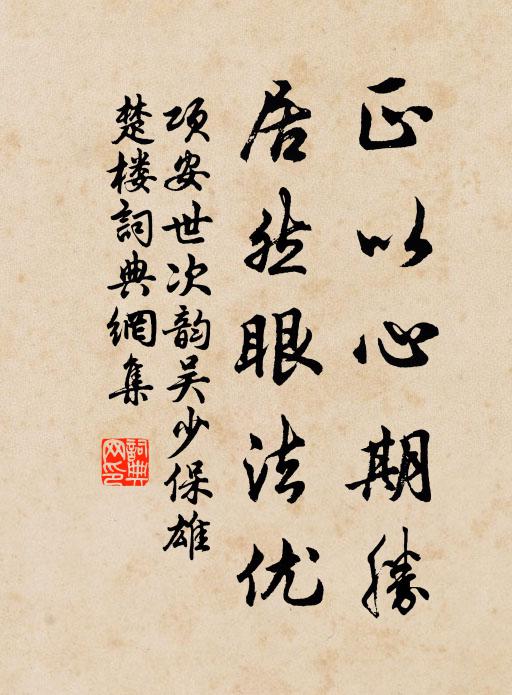 正以心期勝
居然眼法优
项安世次韵吴少保雄
楚楼詞典網集
詞典
网印